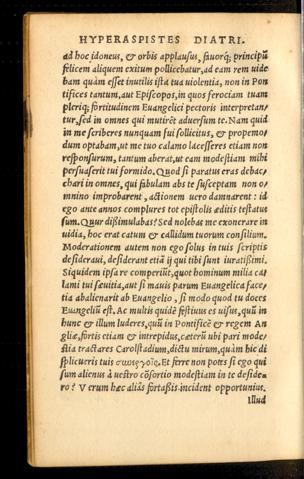 HYPERASPISTES DIATRI.
ad hoc idoneus, & orbis applausus, fauorq́; principũ
felicem aliquem exitum pollicebatur, ad eam rem uide
bam quàm esset inutilis ista tua uiolentia, non in Pon
tifices tantum, aut Episcopos, in quos ferociam tuam
pleriq; fortitudinem Euangelici pectoris interpretan/
tur, sed in omnes qui mutirẽt aduersum te. Nam quid
in me scriberes nunquam fui sollicitus, & propemo/
dum optabam, ut me tuo calamo lacesseres etiam non
responsurum, tantum aberat, ut eam modestiam mihi
persuaserit tui formido. Quod si paratus eras debac/
chari in omnes, qui fabulam abs te susceptam non o/
mnino improbarent, actionem uero damnarent: id
ego ante annos complures tot epistolis æditis testatus
sum. Quur dissimulabas? Sed nolebas me exonerare in
uidia, hoc erat catum & callidum tuorum consilium.
Moderationem autem non ego solus in tuis scriptis
desideraui, desiderant etiã ij qui tibi sunt iuratissimi.
Siquidem ipsa re comperiũt, quot hominum milia ca/
lami tui sæuitia, aut si mauis parum Euangelica face/
tia abalienarit ab Euangelio, si modo quod tu doces
Euangeliũ est. Ac multis quidẽ festiuus es uisus, quũ in
hunc & illum luderes, quũ in Pontificẽ & regem An
gliæ, fortis etiam & intrepidus, cæterũ ubi pari mode/
stia tractares Carolstadium, dictu mirum, quàm hic di
splicueris tuis
Et ferre non potes si ego qui
sum alienus à uestro cõsortio modestiam in te deside/
ro? Verum hæc aliàs fortaßis incident opportunius.
Illud